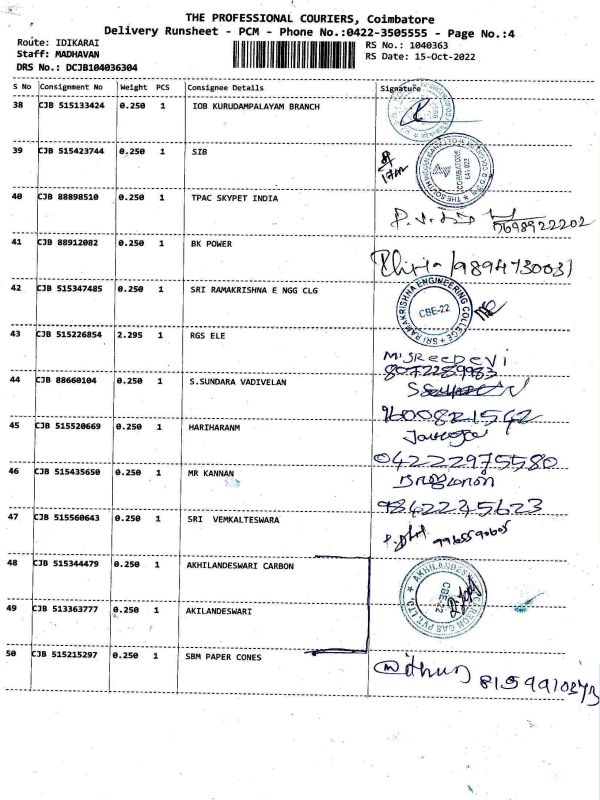 THE PROFESSIONAL COURIERS, Coimbatore
Delivery Runsheet - PCM - Phone No.:0422-3505555 - Page No.:4
Route: IDIKARAI
RS No.: 1040363
Staff: MADHAVAN
RS Date: 15-Oct-2022
DRS No.: DCJB104036304
S No Consignment No Weight PCS Consignee Details Signature
38 CJB 515133424 0.250 1 IOB KURUDAMPALAYAM BRANCH
39 CJB 515423744 0.250 1 SIB
COIMBATORE
40 CJB 88898510 0.250 1 TPAC SKYPET INDIA
7698922202
41 CJB 88912082 0.250 1 BK POWER
9894730031
42 CJB 515347485 0.250 1 SRI RAMAKRISHNA E NGG CLG
SRI RAMAKRISHNA ENGINEERING COLLEGE
CBE-22
43 CJB 515226854 2.295 1 RGS ELE
M. SREEDEVI
8072289983
44 CJB 88660104 0.250 1 S.SUNDARA VADIVELAN
9600821542
45 CJB 515520669 0.250 1 HARIHARANM
04222975580
46 CJB 515435650 0.250 1 MR KANNAN
9842235623
47 CJB 515560643 0.250 1 SRI VEMKALTESWARA
9965590605
48 CJB 515344479 0.250 1 AKHILANDESWARI CARBON
CBE-22
49 CJB 513363777 0.250 1 AKILANDESWARI
50 CJB 515215297 0.250 1 SBM PAPER CONES